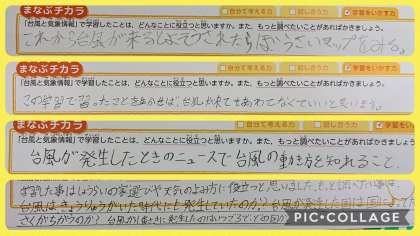 まなぶチカラ
自分で考える力 話し合う力 学習をいかす力
「台風と気象情報」で学習したことは、どんなことに役立つと思いますか。また、もっと調べたいことがあればかきましょう。
これから台風が来るとよそうされたらぼうさいマップをみる。
まなぶチカラ
自分で考える力 話し合う力 学習をいかす力
「台風と気象情報」で学習したことは、どんなことに役立つと思いますか。また、もっと調べたいことがあればかきましょう。
この学習で習ったことをあかせば、台風が来てもあわてなくていいと思います。
まなぶチカラ
自分で考える力 話し合う力 学習をいかす力
「台風と気象情報」で学習したことは、どんなことに役立つと思いますか。また、もっと調べたいことがあればかきましょう。
台風が発生したときのニュースで台風の動き方を知れること。
学習した事はしょうらいの家選びや天気のよみ方に役立つと思いました。もっと調べたい事は、
台風はきょうりゅうがいた時代にも発生していたのか?
さくがちがうのか? 台風が
PIC•COLLAGE